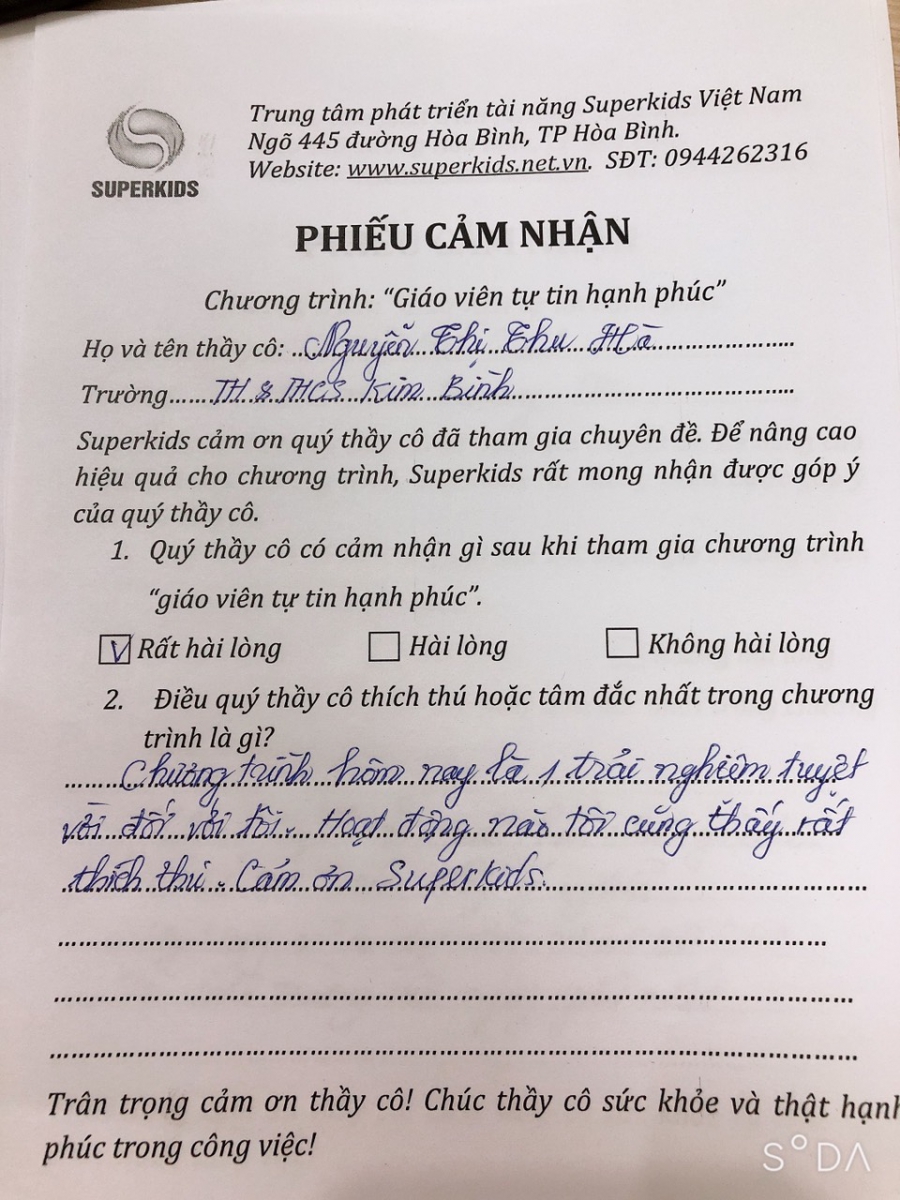 SUPERKIDS
Trung tâm phát triển tài năng Superkids Việt Nam
Ngõ 445 đường Hòa Bình, TP Hòa Bình.
Website: www.superkids.net.vn. SĐT: 0944262316
PHIẾU CẢM NHẬN
Chương trình: “Giáo viên tự tin hạnh phúc”
Họ và tên thầy cô: ..Nguyễn Thị Thu Hà.....................
Trường......TH & THCS Kim Bình...........................................
Superkids cảm ơn quý thầy cô đã tham gia chuyên đề. Để nâng cao
hiệu quả cho chương trình, Superkids rất mong nhận được góp ý
của quý thầy cô.
1. Quý thầy cô có cảm nhận gì sau khi tham gia chương trình
“giáo viên tự tin hạnh phúc”.
☑ Rất hài lòng ☐ Hài lòng ☐ Không hài lòng
2. Điều quý thầy cô thích thú hoặc tâm đắc nhất trong chương
trình là gì?
Chương trình hôm nay là 1 trải nghiệm tuyệt
vời đối với tôi. Hoạt động nào tôi cũng thấy rất
thích thú. Cám ơn Superkids.
Trân trọng cảm ơn thầy cô! Chúc thầy cô sức khỏe và thật hạnh
phúc trong công việc!
SODA